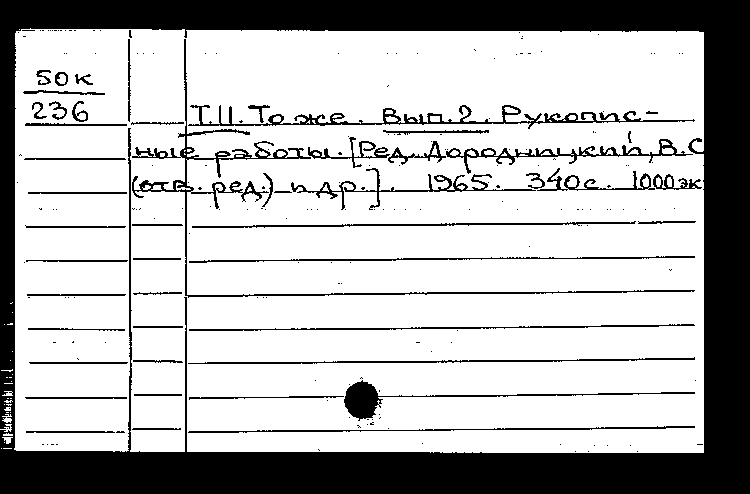 50к
236
Т.11. То же. Вып.2. Рукопис-
ные работы. [Ред. Дородницкий, В.С
(отв. ред.) и др.]. 1965. 340с. 1000 эк